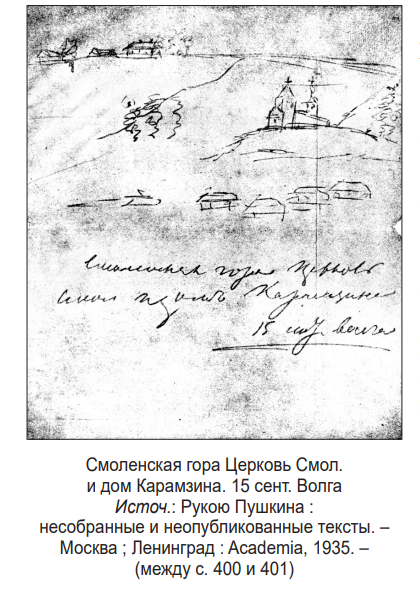 Смоленская гора Церковь
Смол и домъ Карамзина
15 сент Волга
Смоленская гора Церковь Смол.
и дом Карамзина. 15 сент. Волга
Источ.: Рукою Пушкина :
несобранные и неопубликованные тексты. –
Москва ; Ленинград : Academia, 1935. –
(между с. 400 и 401)